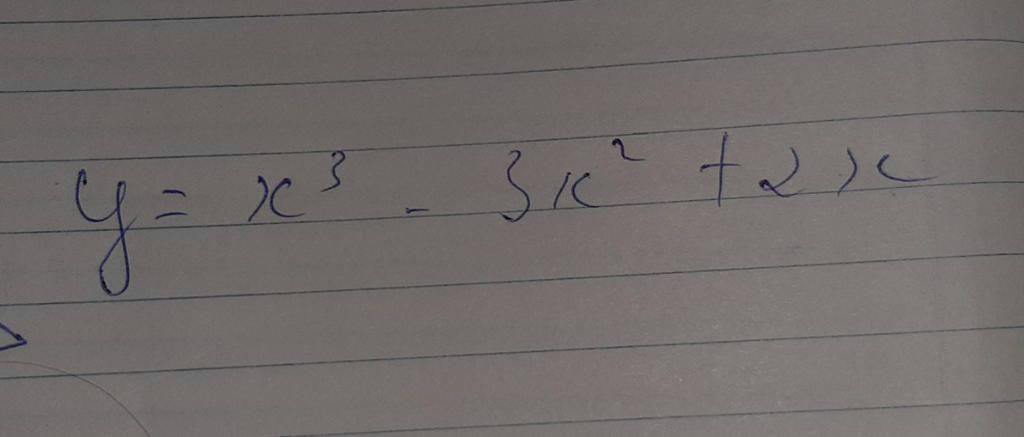 y = x³ - 3x² + 2x